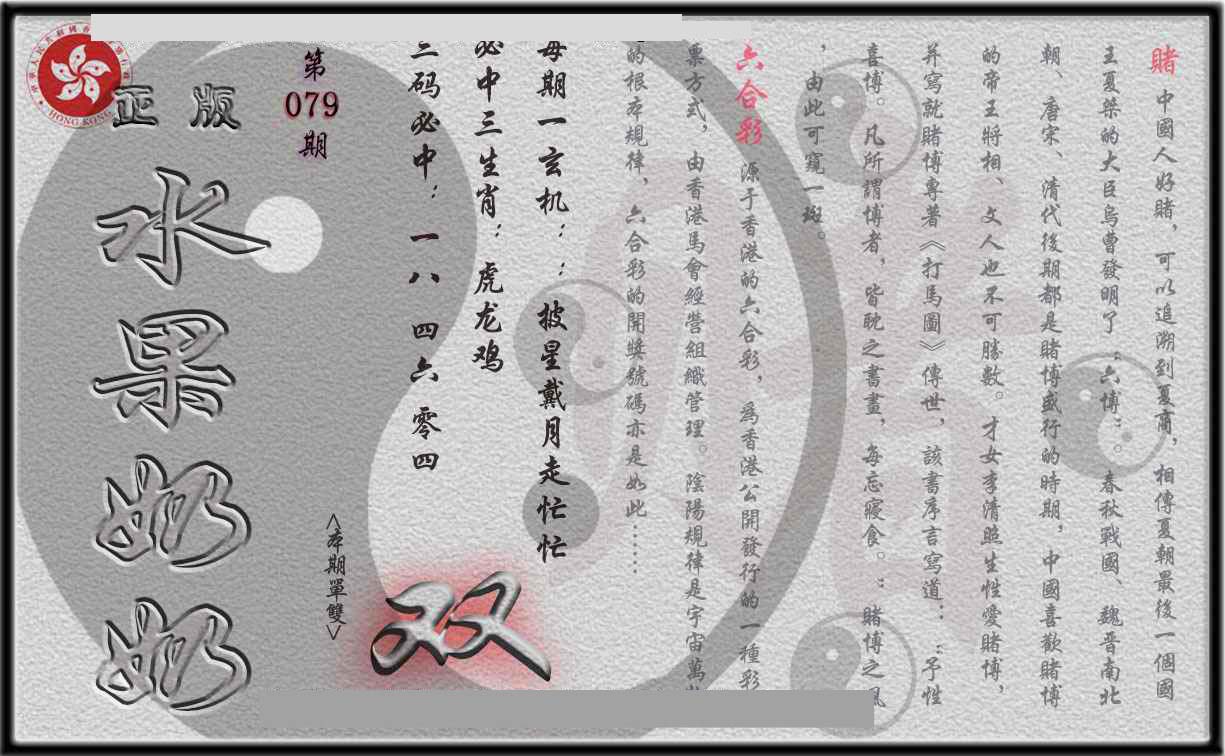 賭 中國人好賭，可以追溯到夏商，相傳夏朝最後一個國
王夏桀的大臣烏曹發明了“六博”。春秋戰國、魏晋南北
朝、唐宋、清代後期都是賭博盛行的時期，中國喜歡賭博
的帝王將相、文人也不可勝數。才女李清照生性愛賭博，
并寫就賭博專著《打馬圖》傳世，該書序言寫道：“予性
喜博。凡所謂博者，皆耽之晝，每忘寢食。”賭博之風
，由此可窺一斑。
六合彩 源于香港的六合彩，爲香港公開發行的一種彩
票方式，由香港馬會經營組織管理。陰陽規律是宇宙萬
的根本規律、六合彩的開獎號碼亦是如此……
每期一玄机：：披星戴月走忙忙
必中三生肖：虎龙鸡
三码必中：一八 四六 零四
第
079
期
正版
水果奶奶
<本期單雙>
双
HONG KONG